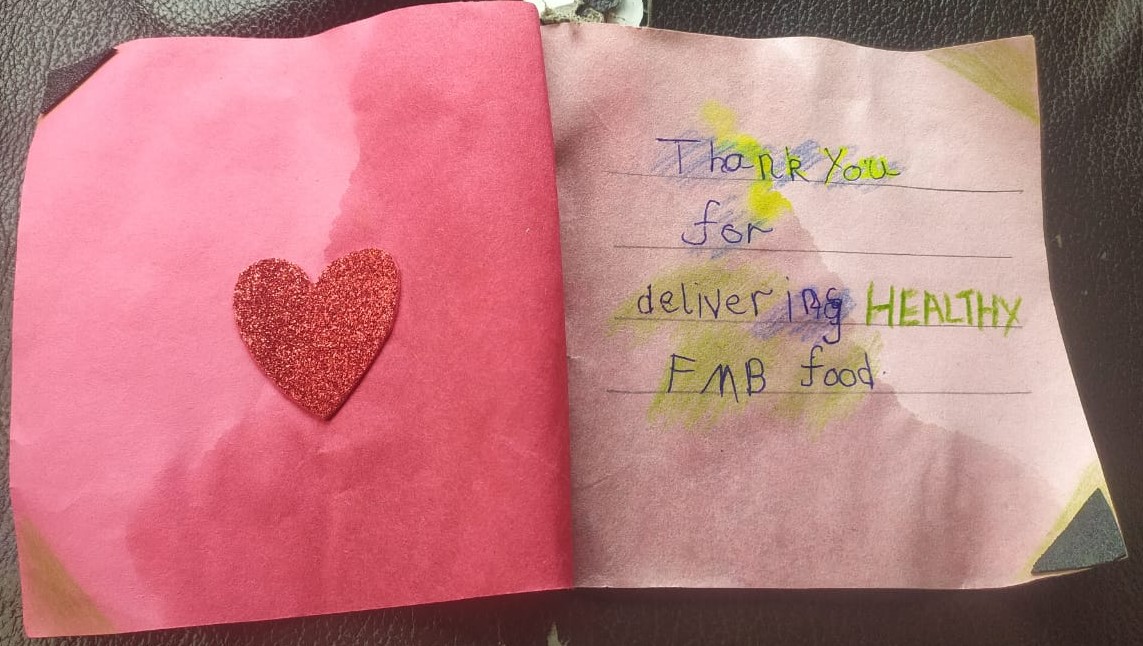 Thank You
for
delivering HEALTHY
FMB food.